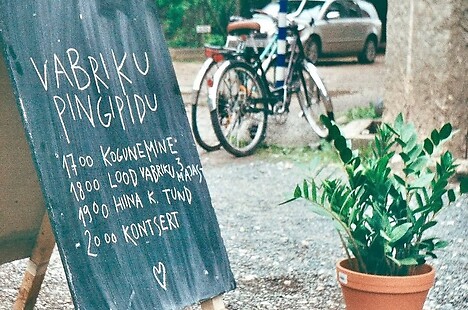 VABRIKU
PINGIPIDU
17.00 KOGUNEMINE
18.00 LOOD VABRIKU
MAJAST
19.00 HIINA K. TUND
20.00 KONTSERT